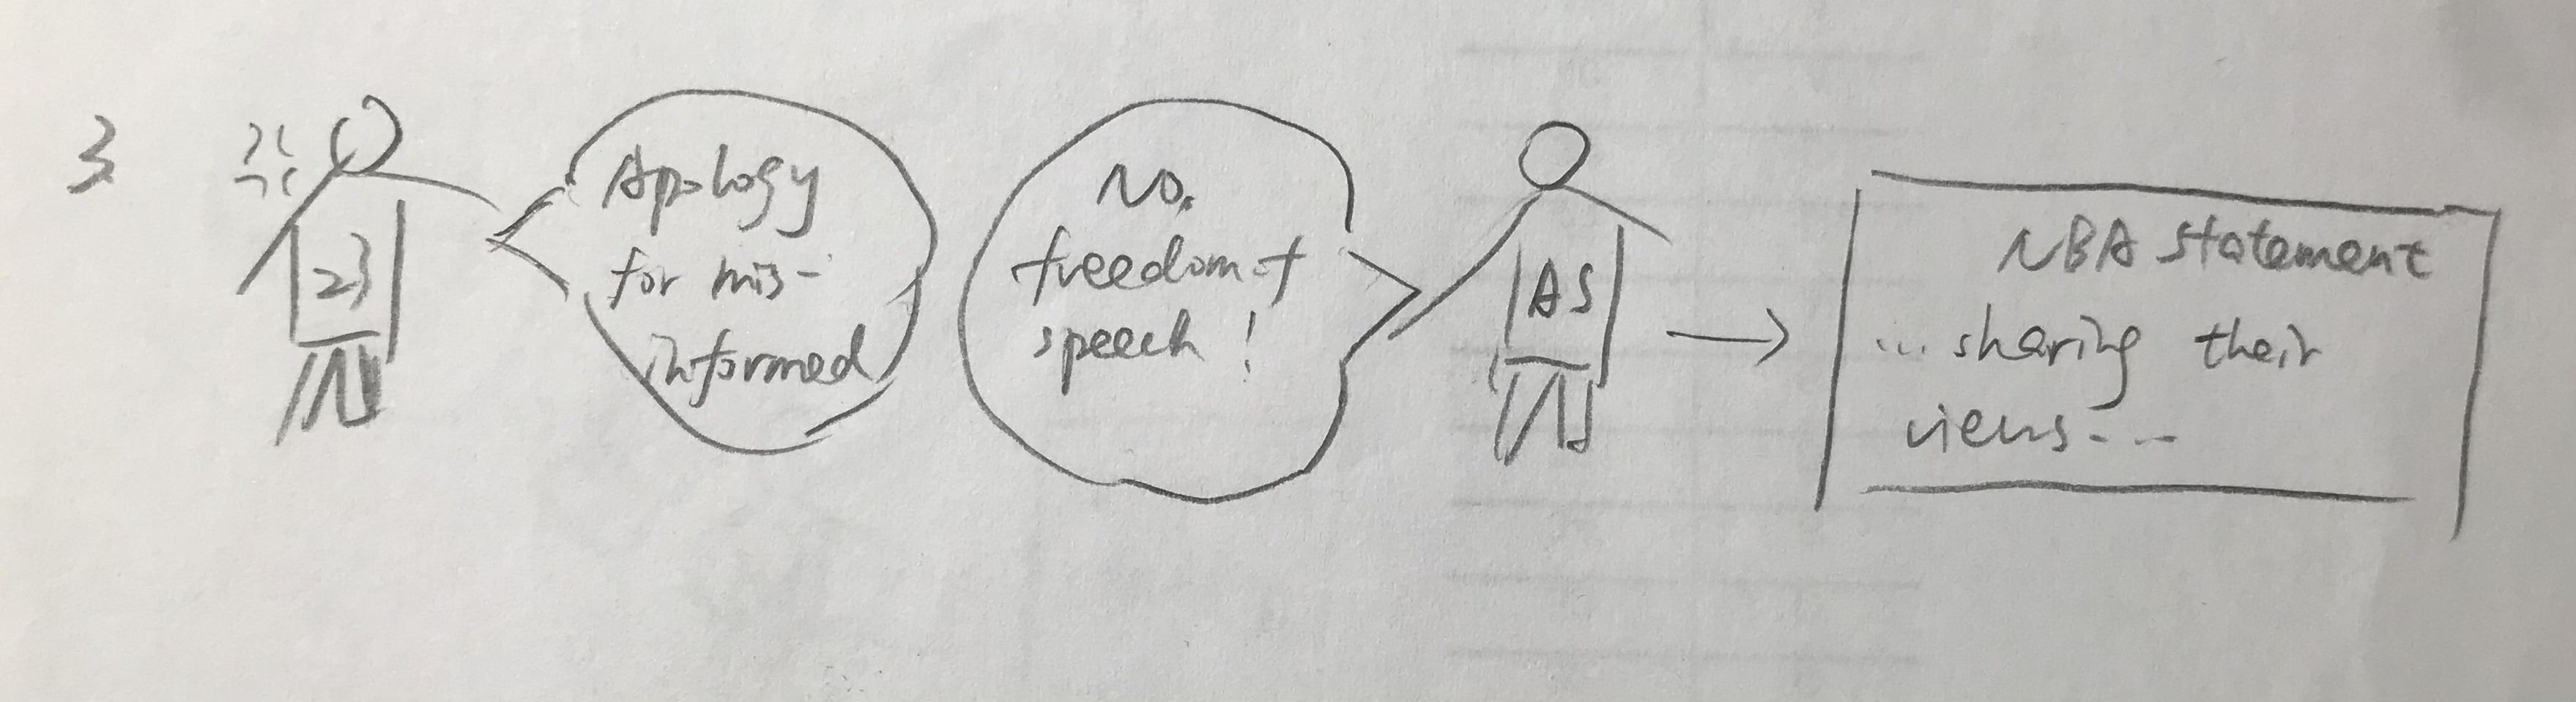 3
23
Apology
for mis-
informed
No.
freedom of
speech!
AS
NBA statement
... sharing their
views...